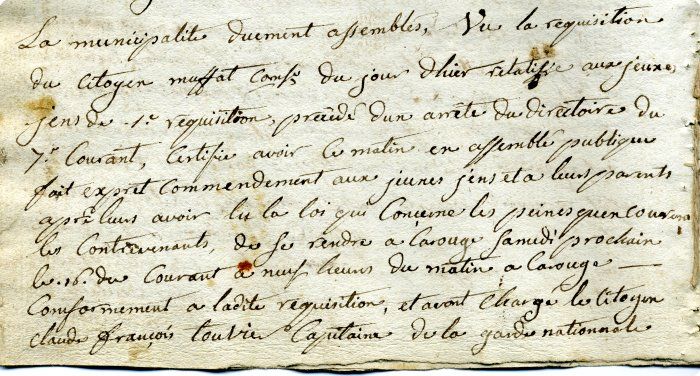 La municipalite duement assemblés, Vu la requisition
du Citoyen muffat Comsr. du jour d'hier relatifie aux jeunes
jens de 1e. requisition, précédé d'un arrêté du directoire du
7e. Courant, Certifie avoir ce matin en assemblé publique
fait exprèt Commendement aux jeunes jens et a leurs parents
après leurs avoir lu la loi qui Concerne les peines qu'encourrent
les Contrevenants, de se rendre a Carouge Samedi prochain
le .16. du Courant a neuf heurs du matin a Carouge —
Comformement a ladite requisition, et avont Charge le Citoyen
Claude françois Capitaine de la garde nationnale